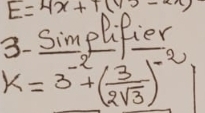 E=4x+
3- Simplifier
K = 3^{-2} + (3/(2√3))^{-2}